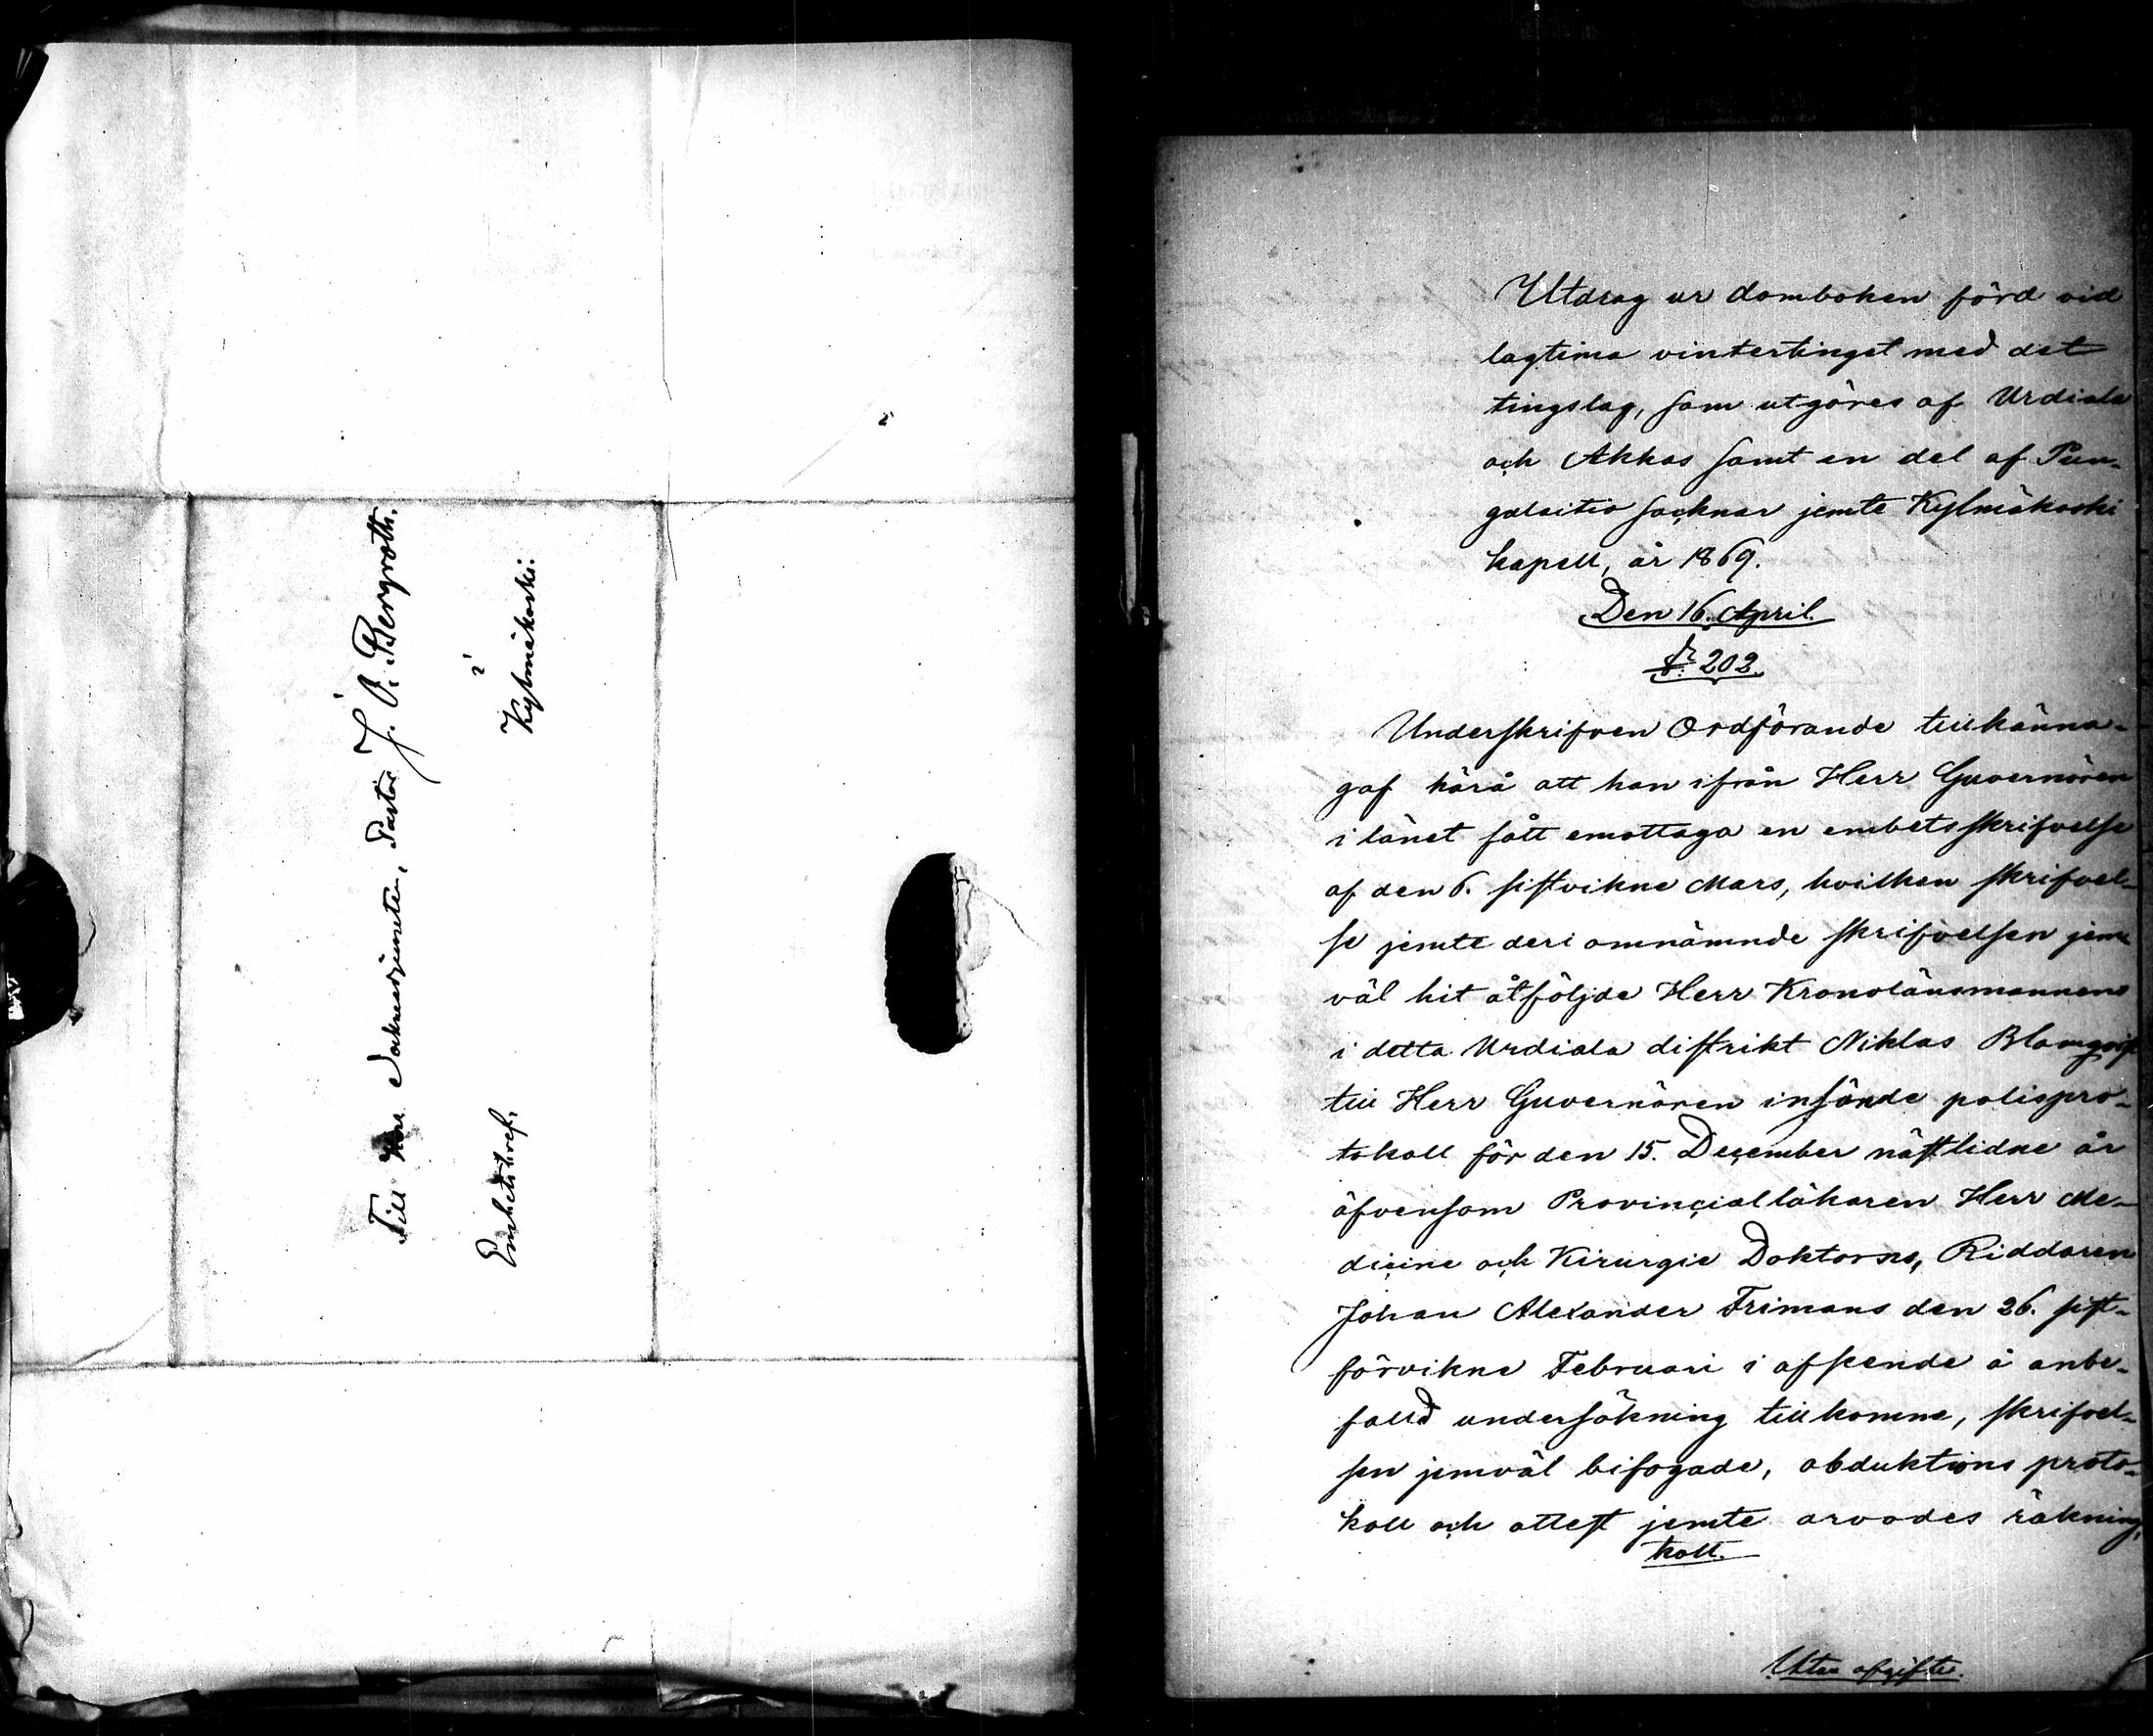 Till Herr Sockneadjunkten, Pastor J. O. Bergroth.
i
Kylmäkoski:
Embetsbref.
Utdrag ur domboken förd vid
lagtima vintertinget med det
tingslag, som utgöres af Urdiala
och Akkas samt en del af Pun-
galaitio socknar jemte Kylmäkoski
kapell, år 1869.
Den 16. April.
§. 202.
Underskrifven Ordförande tillkänna-
gaf härå att han ifrån Herr Guvernören
i länet fått emottaga en embetsskrifvelse
af den 6. sistvikne Mars, hvilken skrifvel-
se jemte deri omnämnde skrifvelsen jem
väl hit åtföljde Herr Kronolänsmannens
i detta Urdiala distrikt Niklas Blomqvist
till Herr Guvernören insände polispro-
tokoll för den 15. December nästlidne år
äfvensom Provincialläkaren Herr Me-
dicine och Kirurgie Doktorns, Riddaren
Johan Alexander Frimans den 26. sist-
förvikne Februari i afseende å anbe-
falld undersökning tillkomne, skrifvel-
sen jemväl bifogade, obduktions proto-
koll och attest jemte arvodes räkning,
koll.
Utan afgifter.